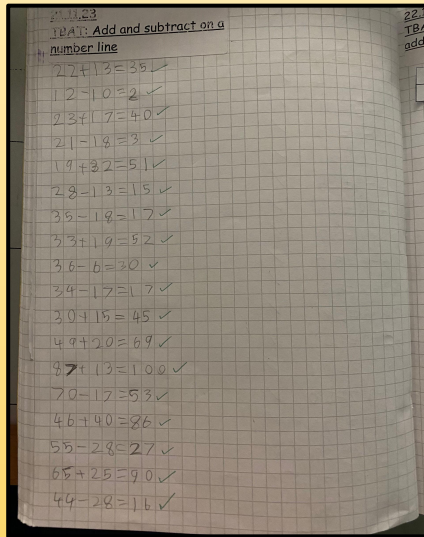 .11.23
TBAT: Add and subtract on a
number line
22+13=35✓
12-10=2✓
23+17=40✓
21-18=3✓
19+32=51✓
28-13=15✓
35-18=17✓
33+19=52✓
36-6=30✓
34-17=17✓
30+15=45✓
49+20=69✓
87+13=100✓
70-17=53✓
46+40=86✓
55-28=27✓
65+25=90✓
44-28=16✓
22.
TBA
add